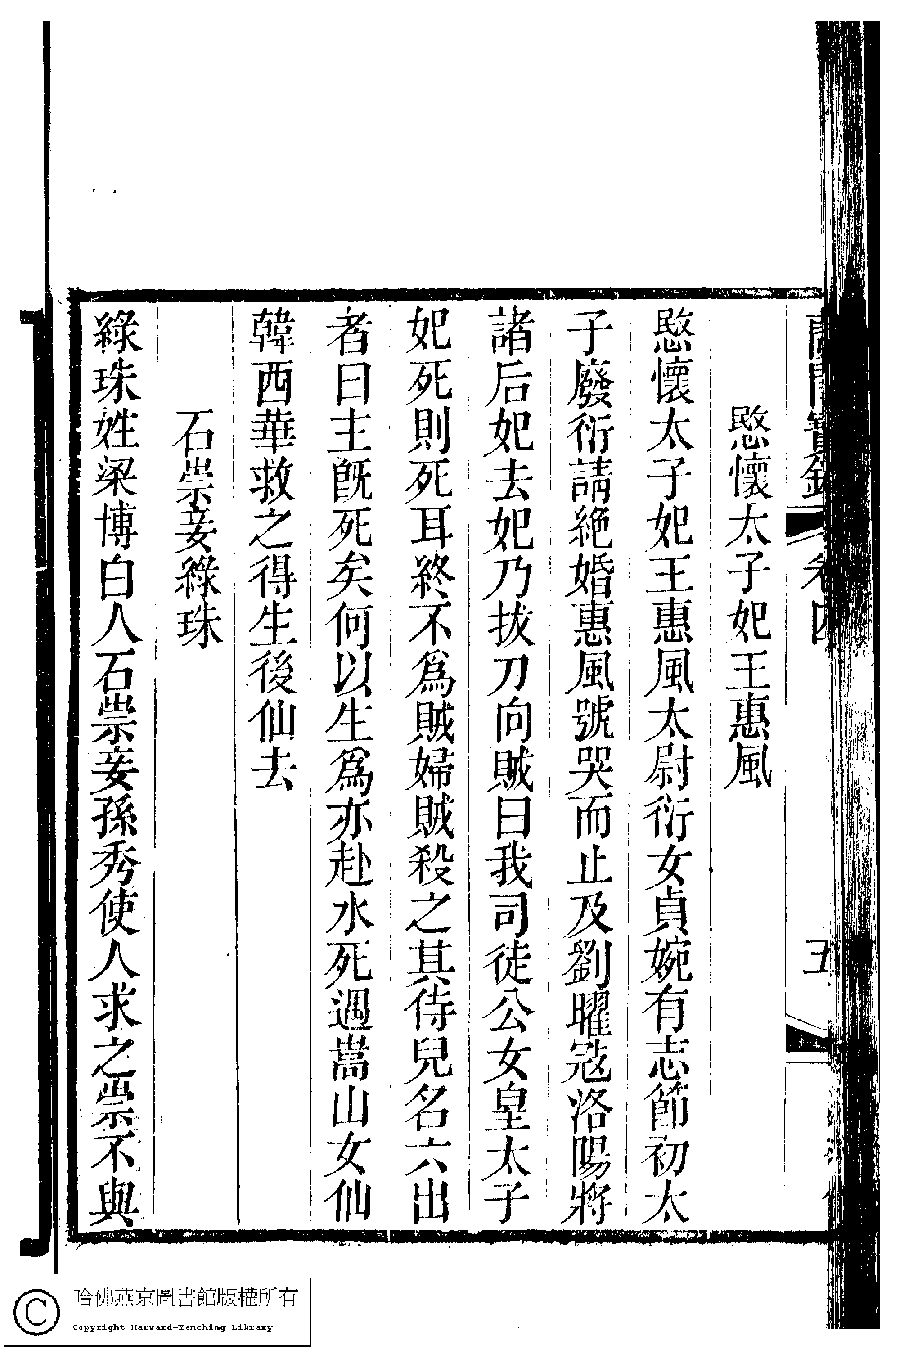 卷四
五
愍懷太子妃王惠風
愍懷太子妃王惠風太尉衍女貞婉有志節初太
子廢衍請絶婚惠風號哭而止及劉曜寇洛陽將
諸后妃去妃乃拔刀向賊曰我司徒公女皇太子
妃死則死耳終不爲賊婦賊殺之其侍兒名六出
者曰主旣死矣何以生爲亦赴水死遇嵩山女仙
韓西華救之得生後仙去
石崇妾綠珠
綠珠姓梁博白人石崇妾孫秀使人求之崇不與
哈佛燕京圖書館版權所有
Copyright Harvard-Yenching Library